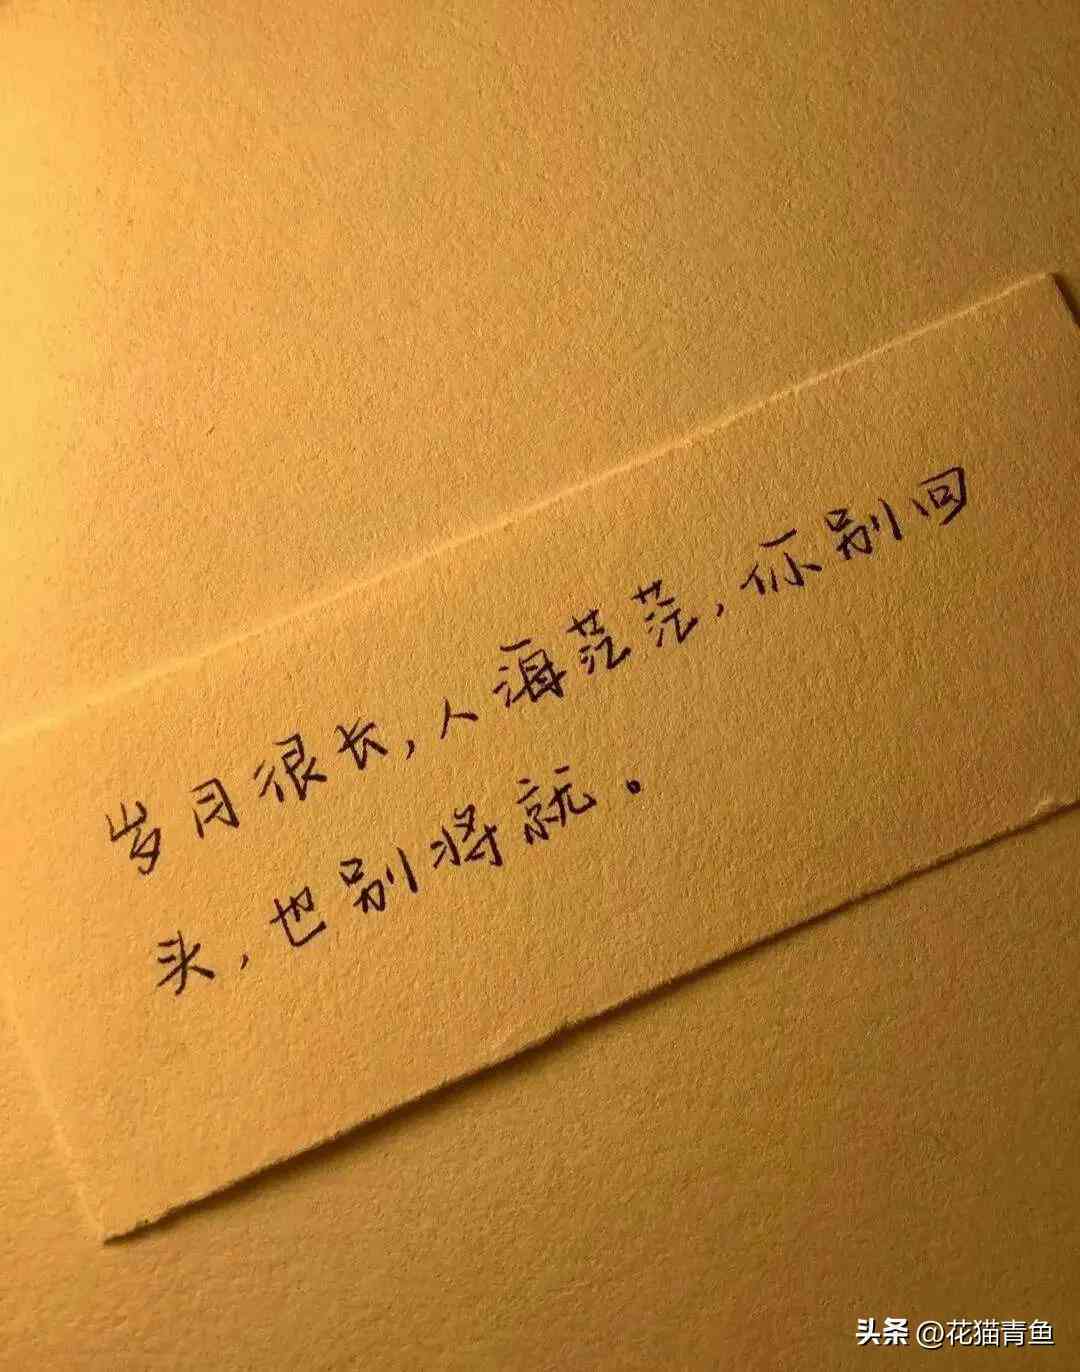 岁月很长,人海茫茫,你别回
头,也别将就。
头条 @花猫青鱼